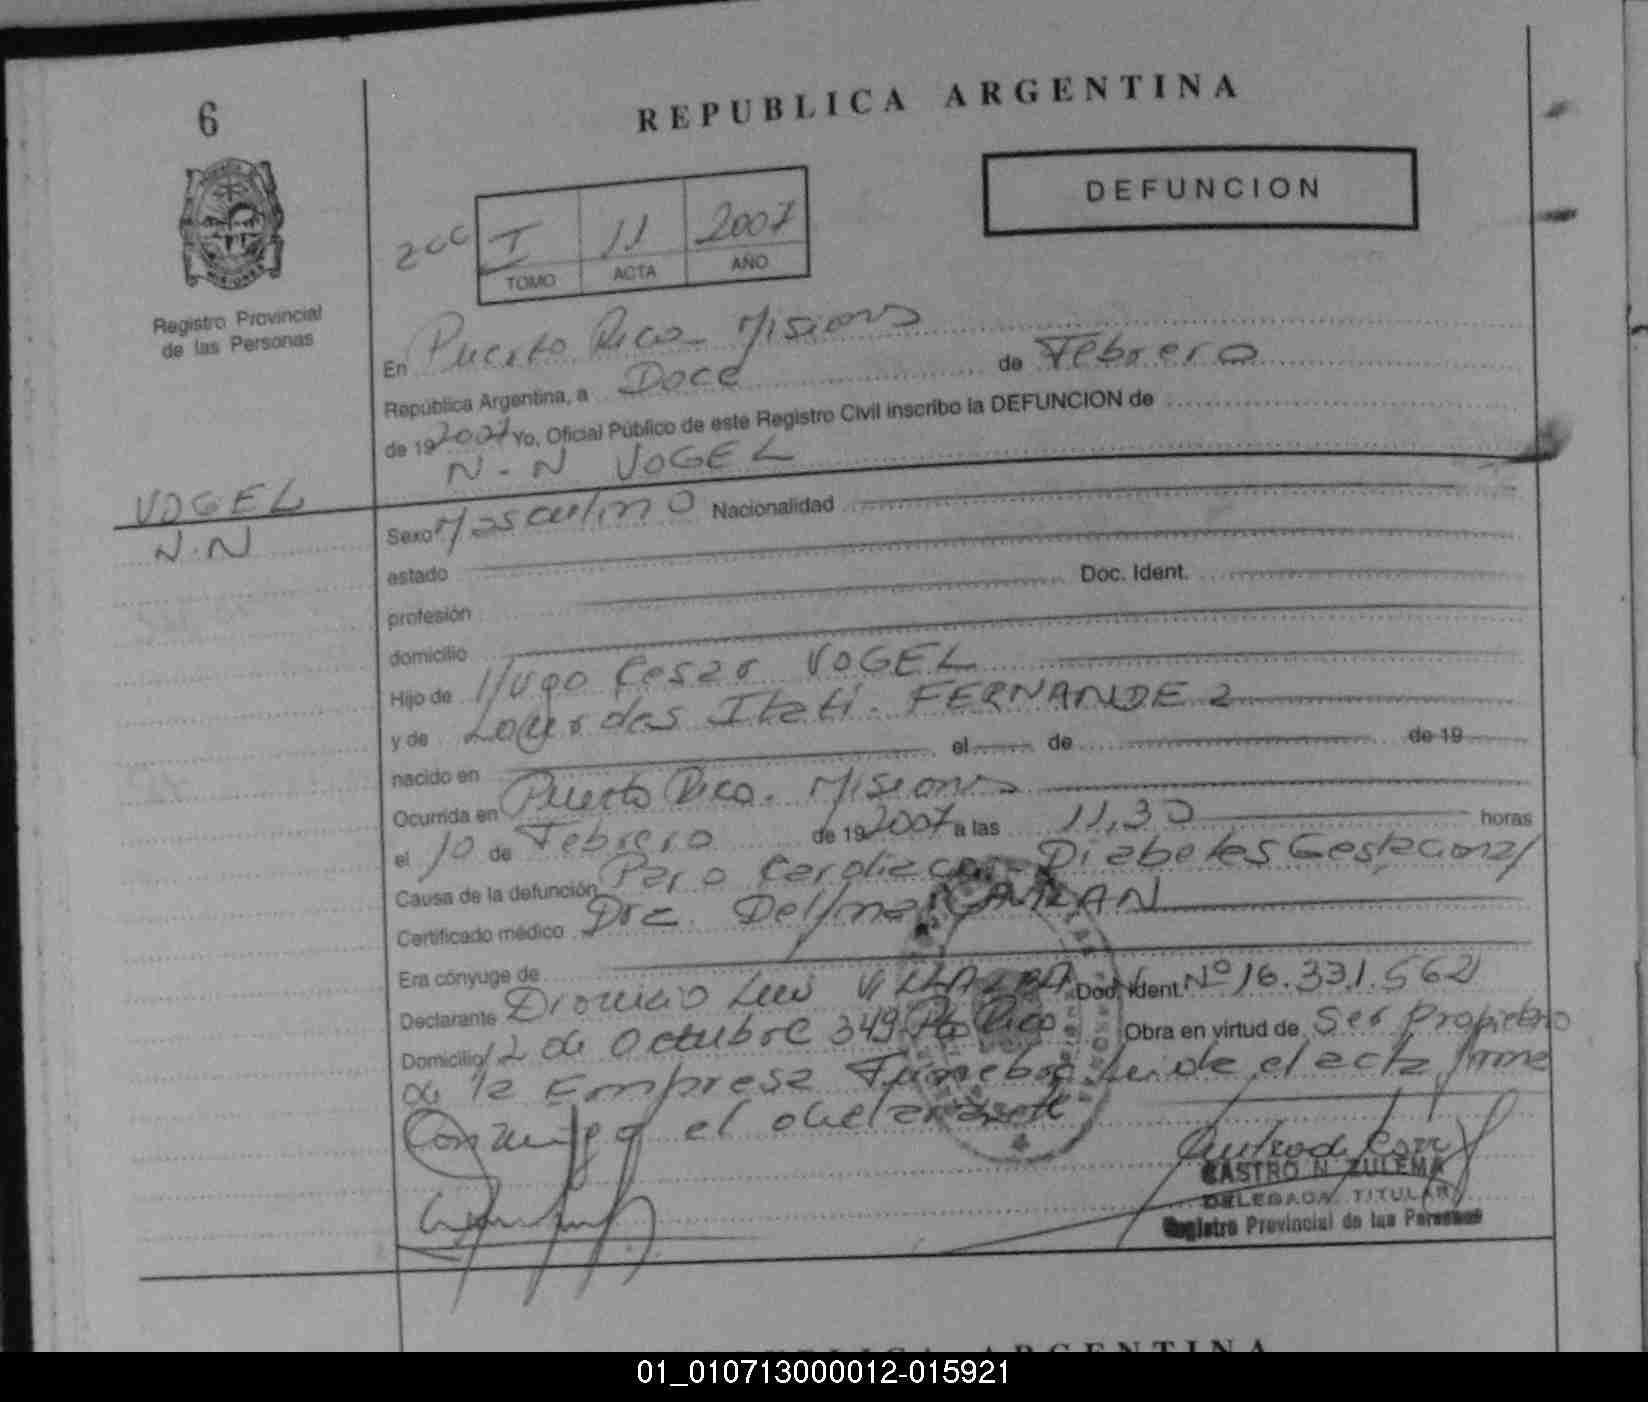 6
REPUBLICA ARGENTINA
DEFUNCION
I 11 2007
TOMO ACTA AÑO
Registro Provincial
de las Personas
En Puerto Rico - Misiones
República Argentina, a Doce de Febrero
de 19 2007 Yo, Oficial Público de este Registro Civil inscribo la DEFUNCION de
N-N VOGEL
VOGEL
N.N
Sexo Masculino Nacionalidad
estado
profesión Doc. Ident.
domicilio
Hijo de Hugo Cesar VOGEL
y de Lourdes Itatí. FERNANDEZ
nacido en el de de 19
Ocurrida en Puerto Rico. Misiones
el 10 de Febrero de 19 2007 a las 11,30 horas
Causa de la defunción Paro Cardiaco - Diabetes Gestacional
Certificado médico Dra. Delfina
Era cónyuge de
Declarante Dionicio Luis VILLALBA Doc. Ident. Nº 16.331.562
Domicilio 12 de Octubre 349 Pto Rico Obra en virtud de Ser Propietario
de la Empresa Funebre Leida el acta firma
Conmigo el declarante
CASTRO N. ZULEMA
DELEGADA TITULAR
Registro Provincial de las Personas
REPUBLICA ARGENTINA
01_010713000012-015921